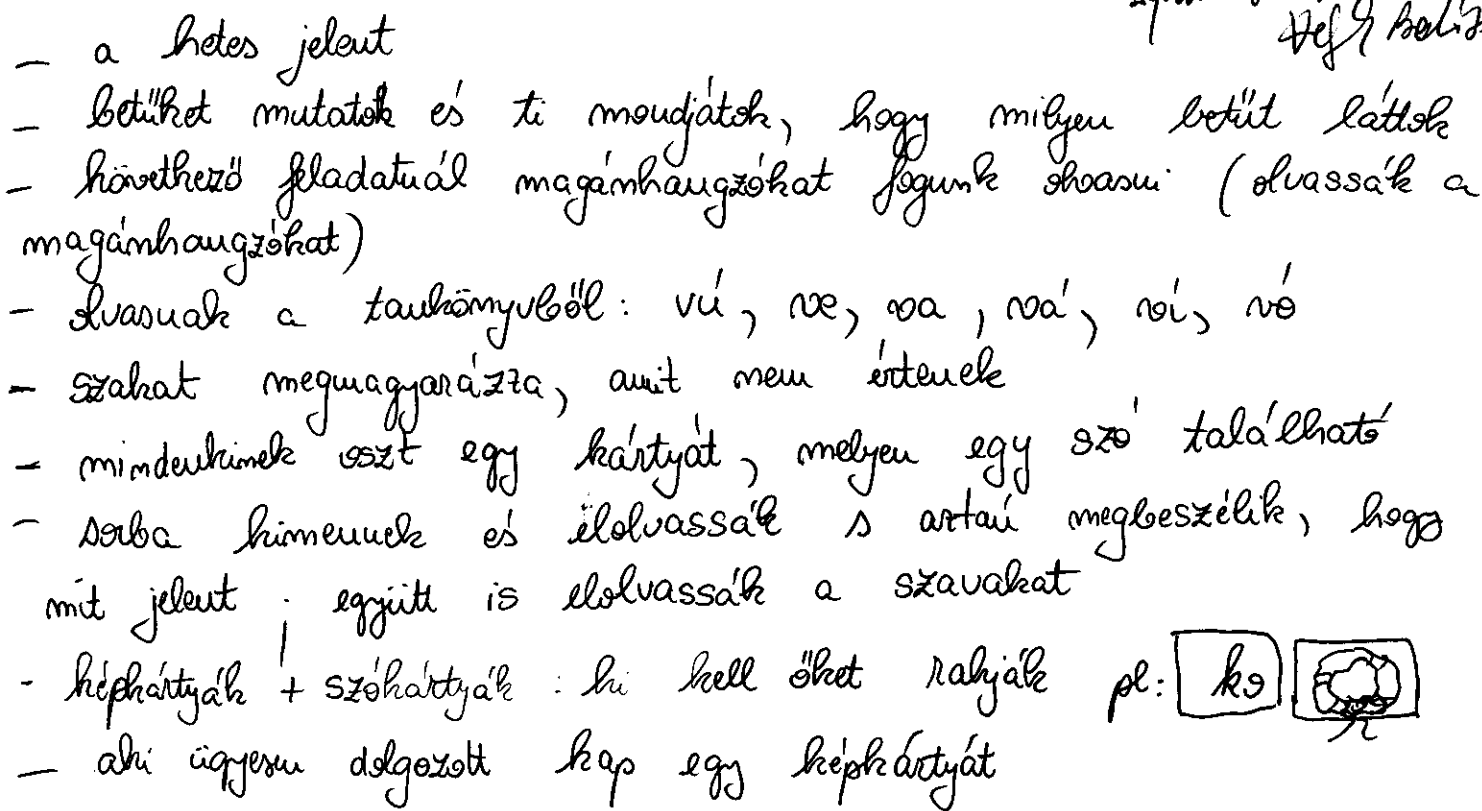 - a hetes jelent
- betűket mutatok és ti mondjátok, hogy milyen betűt láttok
- következő feladatnál magánhangzókat fogunk olvasni (olvassák a
magánhangzókat)
- olvasnak a tankönyvből: vú, ve, va, vá, ví, vó
- szakat megmagyarázza, amit nem értenek
- mindenkinek oszt egy kártyát, melyen egy szó található
- sorba kimennek és elolvassák s aztán megbeszélik, hogy
mit jelent; együtt is elolvassák a szavakat
- képkártyák + szókártyák: ki kell őket rakják pl:
- aki ügyesen dolgozott kap egy képkártyát